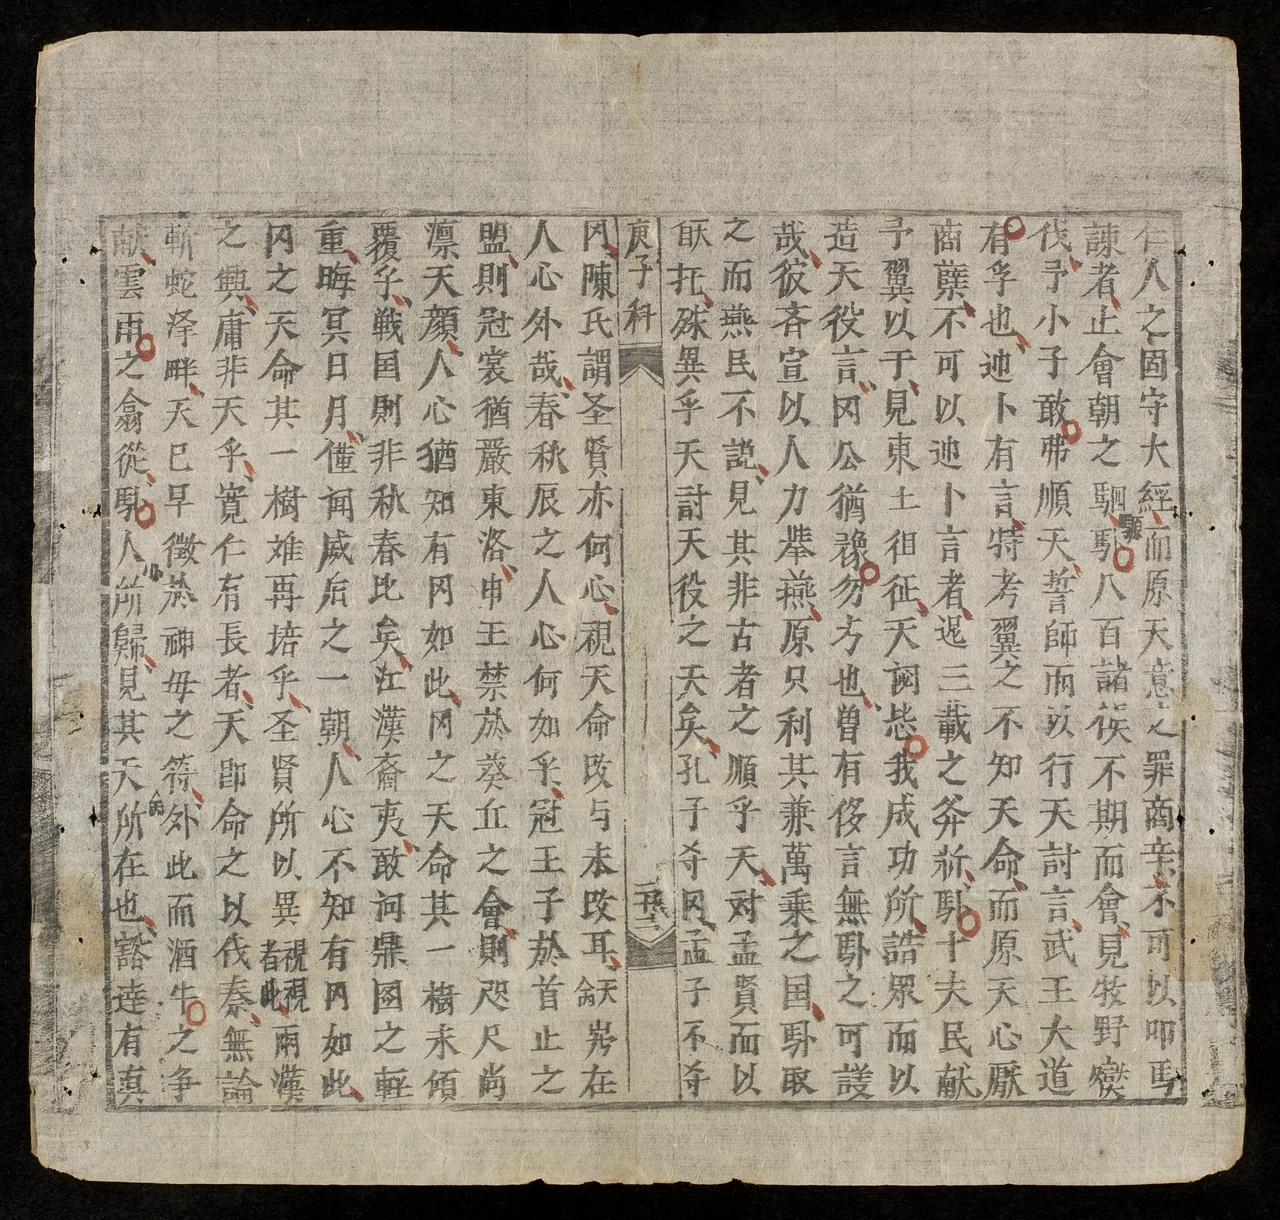 仁人之固守大經而原天意之罪商辛不可以叩馬
諫者止會朝之駉馭八百諸侯不期而會見牧野燮
伐予小子敢弗順天誓師而以行天討言武王大道
有孚也迪卜有言特考翼之不知天命而原天心厭
商孽不可以迪卜言者遅三載之斧斨馭十夫民献
予翼以于見東土徂征天閟毖我成功所誥眾而以
造天役言冈公猶豫勿方也曽有侈言無馭之可謀
哉彼吝宣以人力舉燕原只利其兼萬乗之国馭取
之而燕民不説見其非古者之順乎天对孟賢而以
猒抂殊異乎天討天役之天矣孔子夺冈孟子不夺
庚子科
二十三
冈陳氏謂圣賢亦何心視天命攺与未攺耳天命岕在
人心外哉春秋辰之人心何如乎冠王子於首止之
盟則冠裳猶嚴東洛申王禁於葵丘之會則咫尺尚
凛天顔人心猶知有冈如此冈之天命其一樹未傾
覆乎戦国則非秋春比矣江漢裔夷敢问鼎図之軽
重晦冥日月僅闻威后之一朝人心不知有冈如此
冈之天命其一樹难再培乎圣賢所以異視視者此兩漢
之興庸非天乎寛仁有長者天卽命之以伐秦無論
斬蛇泽畔天已早徴於神毋之符外此而酒牛之争
献雲雨之翕從馭人所歸見其天所在也豁達有真